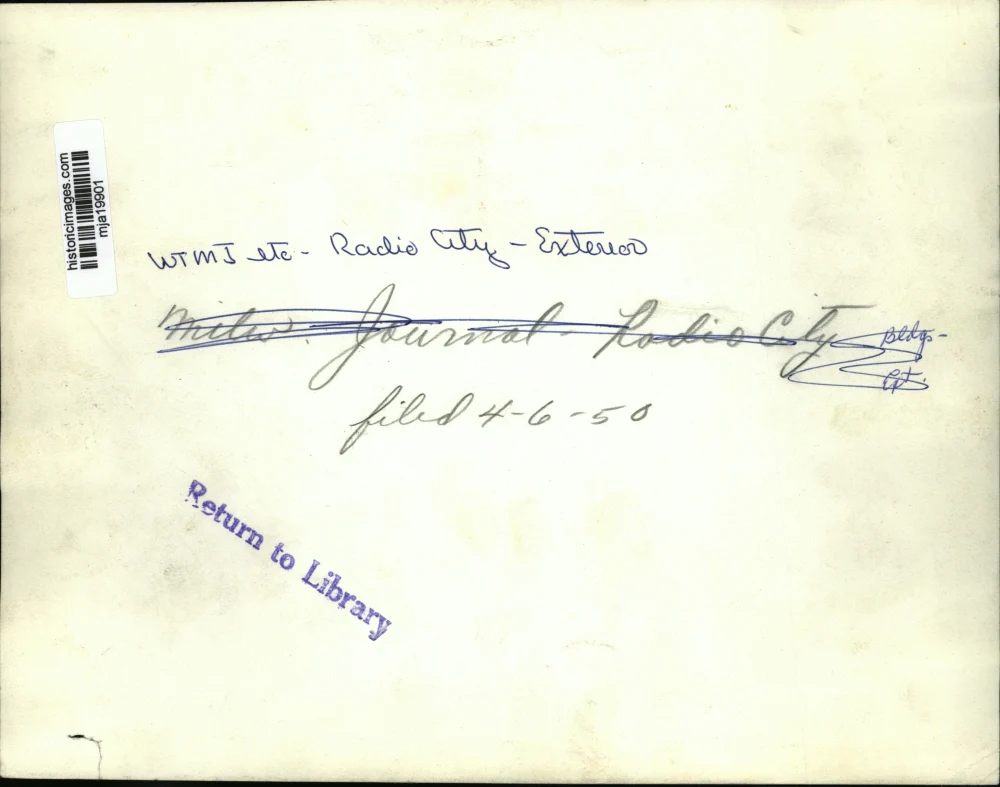 historicimages.com
mja19901
WTMJ etc - Radio City - Exterior
Milw. Journal - Radio City
Bldgs -
filed 4-6-50
Return to Library